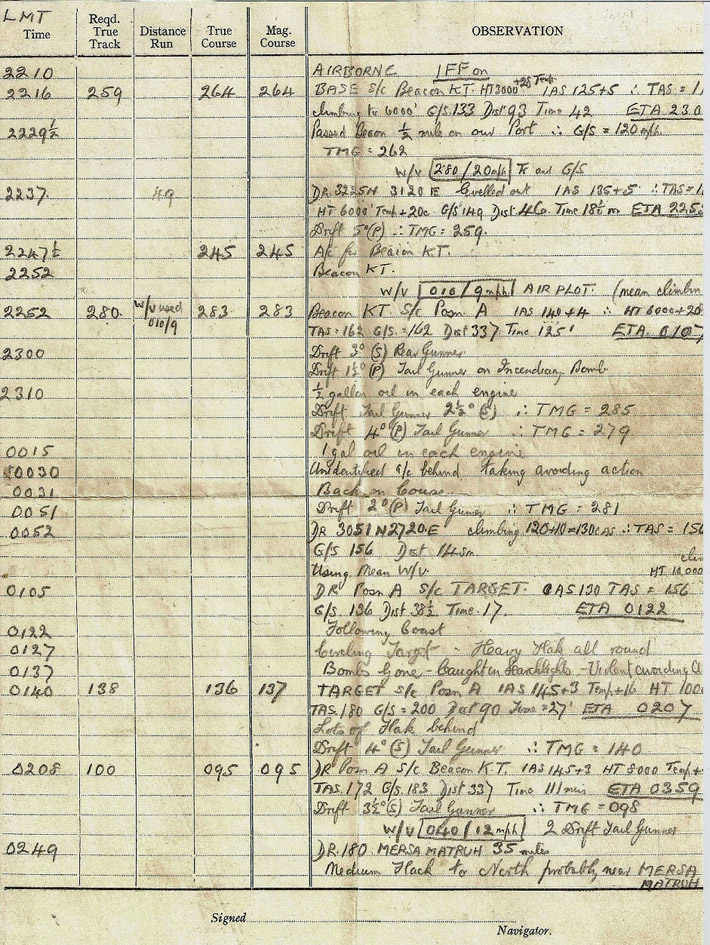 LMT
Time Reqd. True Track Distance Run True Course Mag. Course OBSERVATION
2210 AIRBORNE IFF on
2216 259 264 264 BASE S/C Beacon KT. HT 3000' +28 Temp IAS 125+5 ∴ TAS = 1
climbing to 6000' G/S.133 Dist 93 Time 42 ETA 230
2229½ Passed Beacon ½ mile on our Port ∴ G/S = 120 mph.
TMG = 262
W/V 280/20mph Tk and G/S
2237. 49 DR. 3225N 3120E levelled out IAS 135+5 ∴ TAS = 1
HT 6000' Temp +20c G/S 149 Dist 46 Time 18½ m ETA 225
Drift 5°(P) ∴ TMG = 259.
2247½ 245 245 A/c for Beacon KT.
2252 Beacon KT.
W/V 010/9mph AIR PLOT. (mean climbin
2252 280. W/V used 010/9 283 283 Beacon KT. S/c Posn. A IAS 140+4 ∴ HT 6000+20
TAS=162 G/S.=162 Dist 337 Time 125' ETA. 0107
2300 Drift 3° (S) Rear Gunner
Drift 1½°(P) Tail Gunner on Incendiary Bomb
2310 ½ gallon oil in each engine
Drift Tail Gunner 2½° (S) ∴ TMG = 285
Drift 4° (P) Tail Gunner ∴ TMG = 279.
0015 1 gal oil in each engine
0030 Unidentified a/c behind taking avoiding action
0031 Back on Course
0051 Drift 2°(P) Tail Gunner ∴ TMG = 281
0052 DR 3051N 2720E climbing 120+10=130 CAS ∴ TAS = 156
G/S 156 Dist 14sm
Using Mean W/V. HT 10,000
0105 DR Posn A S/C TARGET. CAS 130 TAS = 156
G/S. 136 Dist 38½ Time. 17. ETA 0122
0122 Following Coast
0127 Circling Target - Heavy Flak all round
0137 Bombs Gone - Caught in Searchlights - Violent avoiding
0140 138 136 137 TARGET S/c Posn A IAS 145+3 Temp +16 HT 1000
TAS. 180 G/S = 200 Dist 90 Time = 27' ETA 0207
Lots of Flak behind
Drift 4° (S) Tail Gunner ∴ TMG = 140
0208 100 095 095 DR Posn A S/C Beacon K.T. IAS 145+3 HT 8000 Temp +
TAS. 172 G/S. 183 Dist 337 Time 111 mins ETA 0359
Drift 3½°(S) Tail Gunner ∴ TMG = 098
W/V 040/12mph 2 Drift Tail Gunner
0249 DR. 180 MERSA MATRUH 35 miles
Medium Flack to North probably near MERSA
MATRUH
Signed
Navigator.